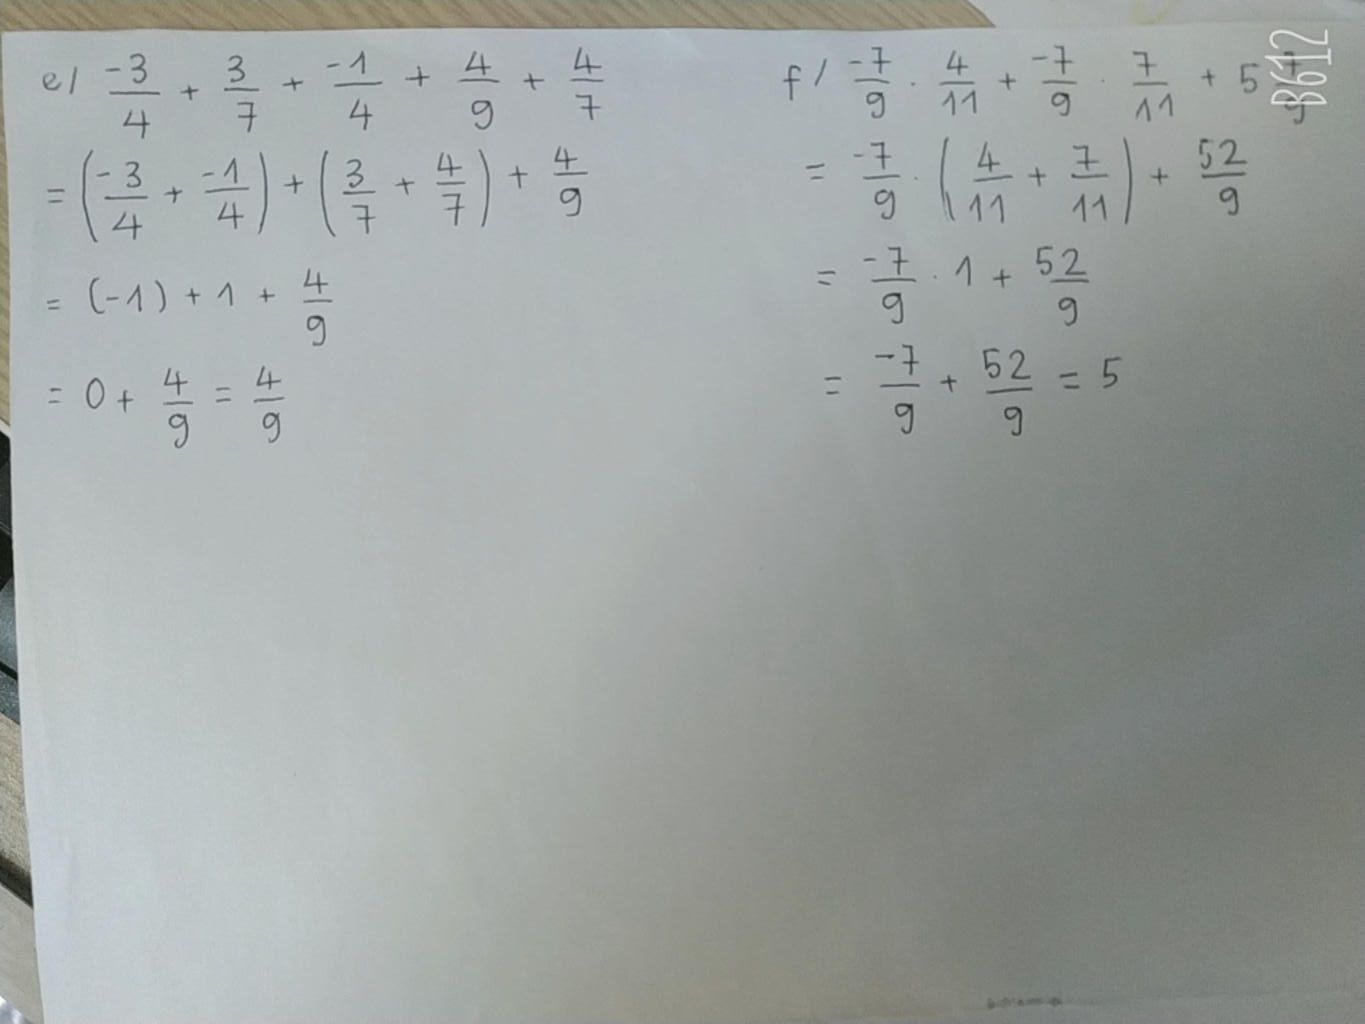 e/ -3/4 + 3/7 + -1/4 + 4/9 + 4/7
= (-3/4 + -1/4) + (3/7 + 4/7) + 4/9
= (-1) + 1 + 4/9
= 0 + 4/9 = 4/9
f/ -7/9 . 4/11 + -7/9 . 7/11 + 5 7/9
= -7/9 . (4/11 + 7/11) + 52/9
= -7/9 . 1 + 52/9
= -7/9 + 52/9 = 5
B612